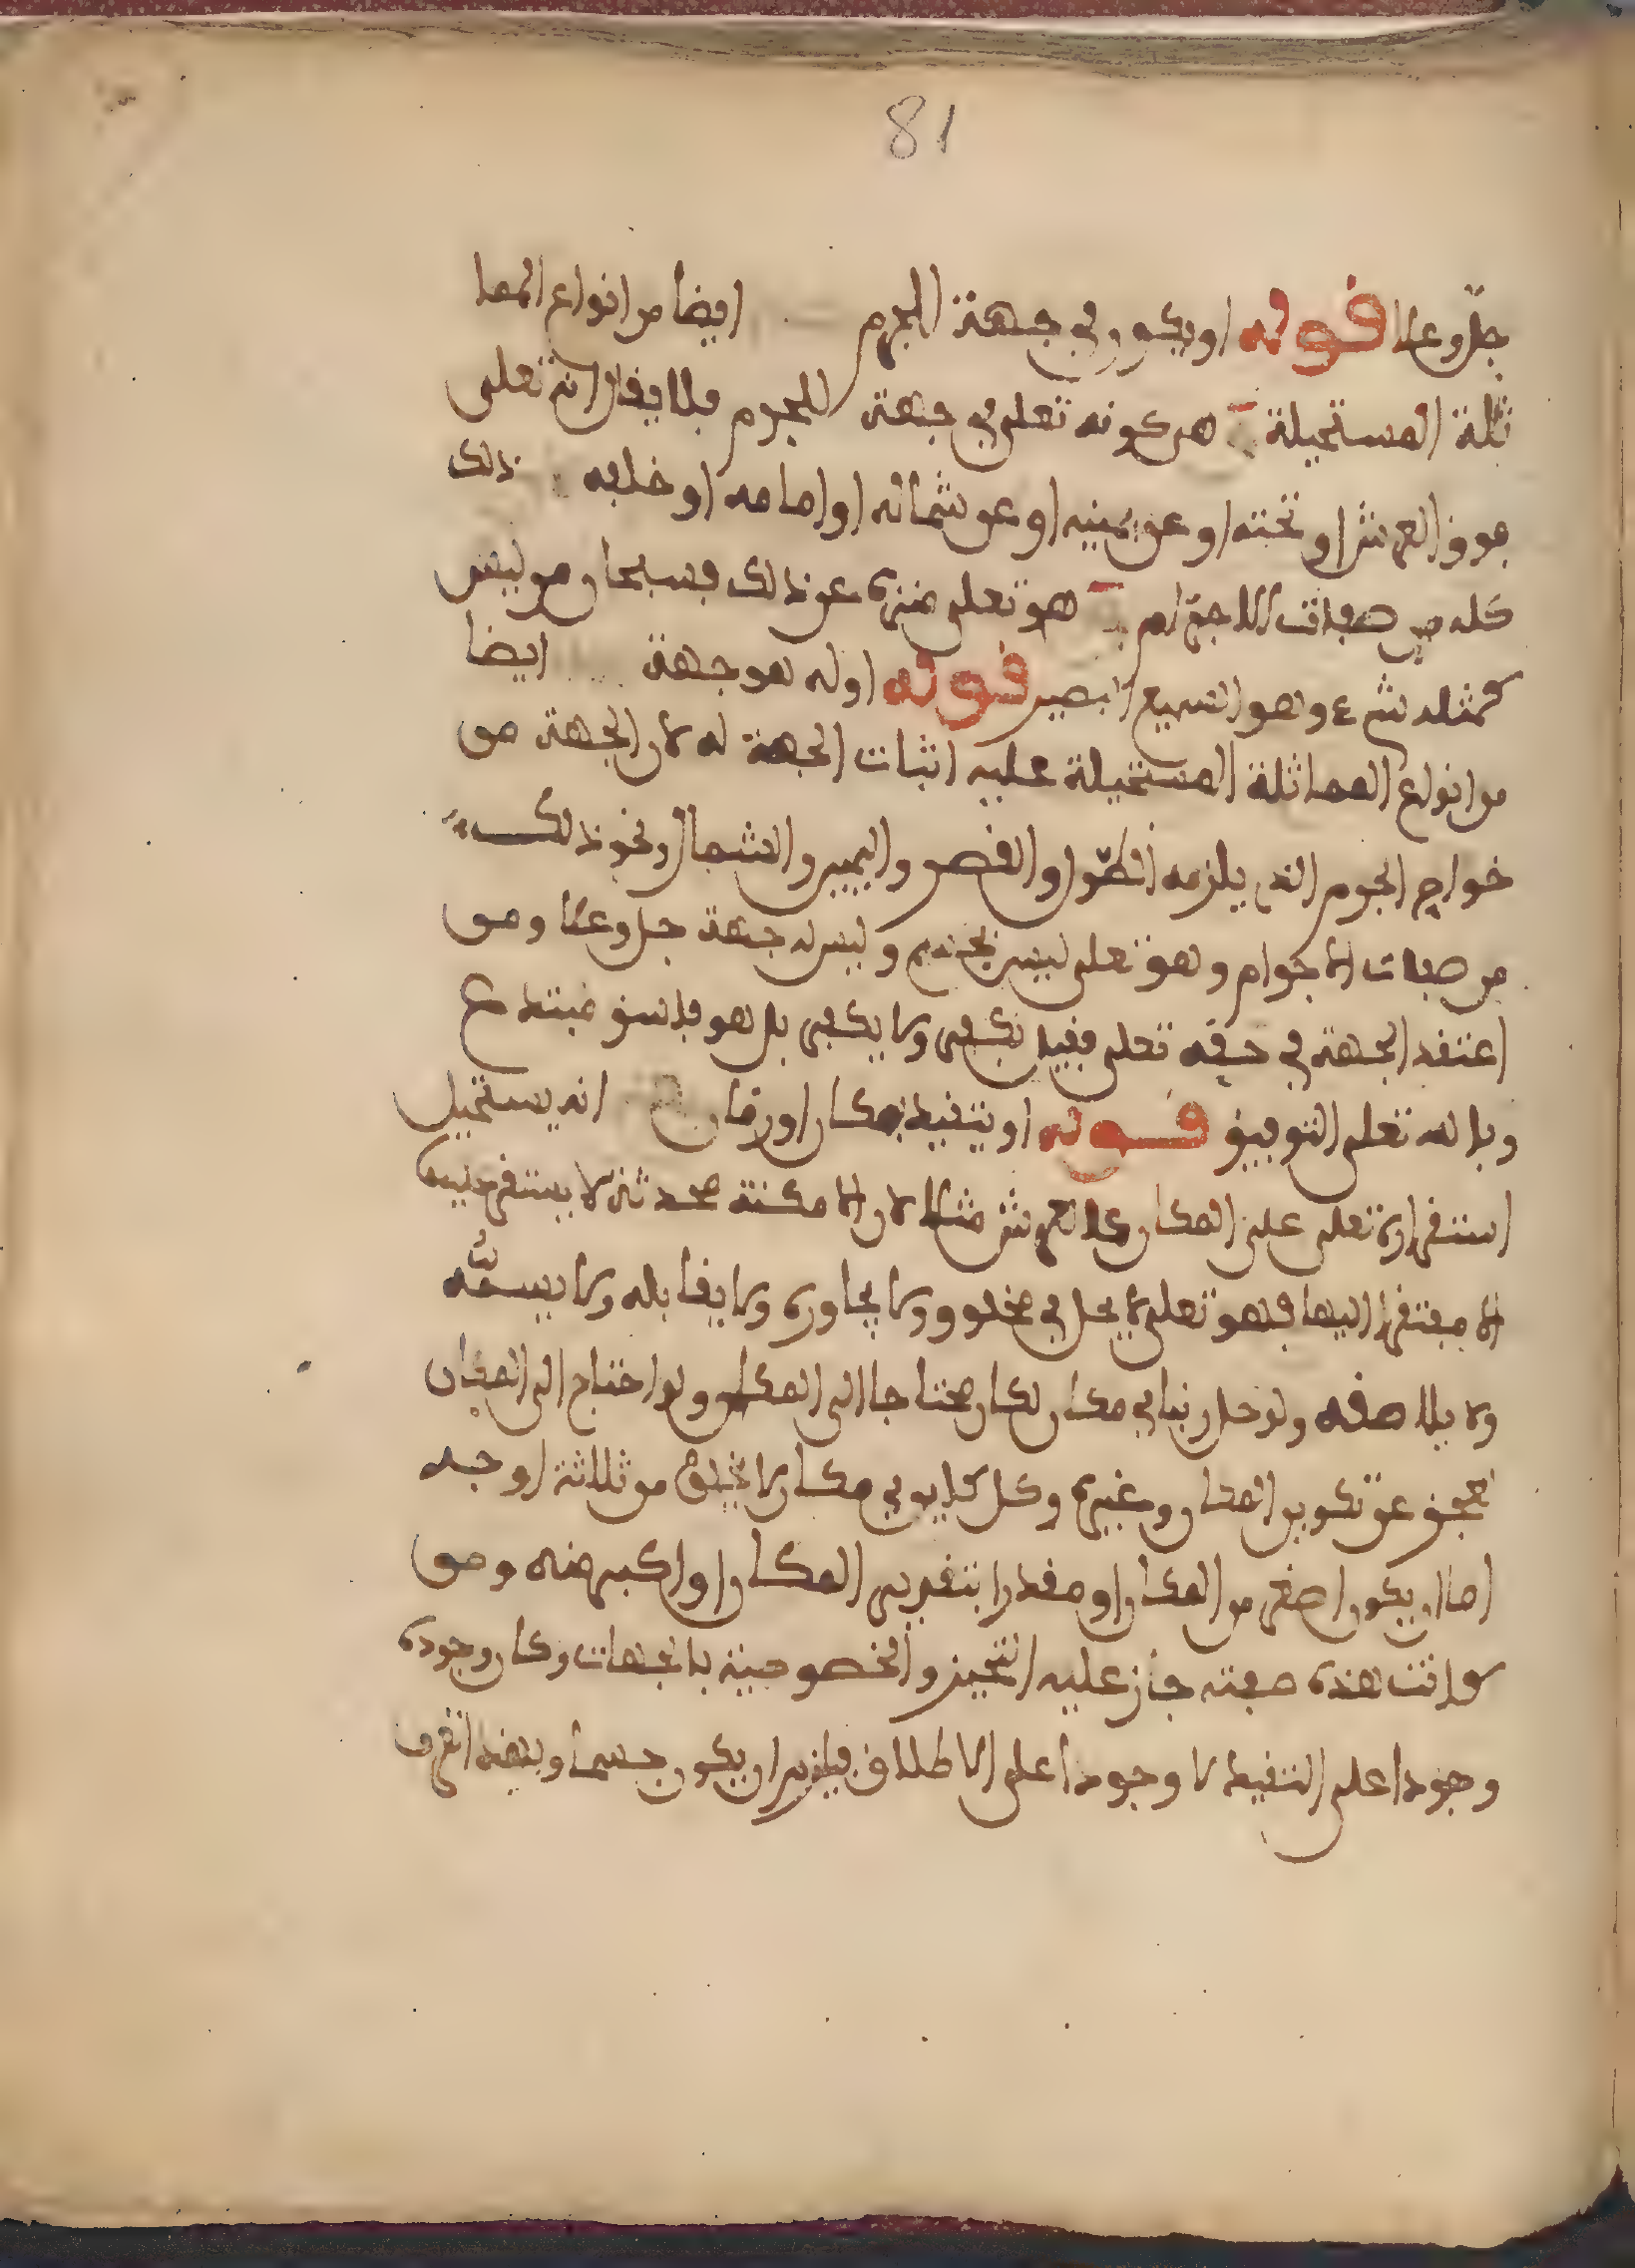 81
جل وعلا قوله او يكون في جهة الجرم ايضا من انواع المما
ثلة المستحيلة هو كونه تعلى في جهة للجرم فلا يقال انه تعلى
فوق العرش او تحته او عن يمينه او عن شماله او امامه او خلفه ذلك
كله من صفات الاجرام هو تعلى منزه عن ذلك فسبحان من ليس
كمثله شيء وهو السميع البصير قوله اوله هو جهة ايضا
من انواع المماثلة المستحيلة عليه اثبات الجهة له لان الجهة من
خواص الجرم الذي يلزمه الطول والقصر واليمين والشمال ونحو ذلك
من صفات الاجرام وهو تعلى ليس بجرم وليس له جهة جل وعلا ومن
اعتقد الجهة في حقه تعلى فقيل يكفر ولا يكفر بل هو فاسق مبتدع
وبالله تعلى التوفيق قوله او يتقيد بمكان او زمان انه يستحيل
استقراره تعلى على المكان كالعرش مثلا لان الامكنة محدثة لا يستقر عليها
الا مفتقرا اليها فهو تعلى لا يحل في مخلوق ولا يجاوره ولا يقابله ولا يسعه
ولا يلاصقه ولو حل ربنا في مكان لكان محتاجا الى المكان ولو احتاج الى المكان
لعجز عن تكوين المكان وغيره وكل كاين في مكان لا يخلوا من ثلاثة اوجه
اما ان يكون اصغر من المكان او مقدرا بتقدير المكان او اكبر منه ومن
كانت هذه صفته جاز عليه التحيز والخصوصية بالجهات وكان وجوده
وجودا على التقييد لا وجودا على الاطلاق فيلزم ان يكون جسما وبهذا تعرف